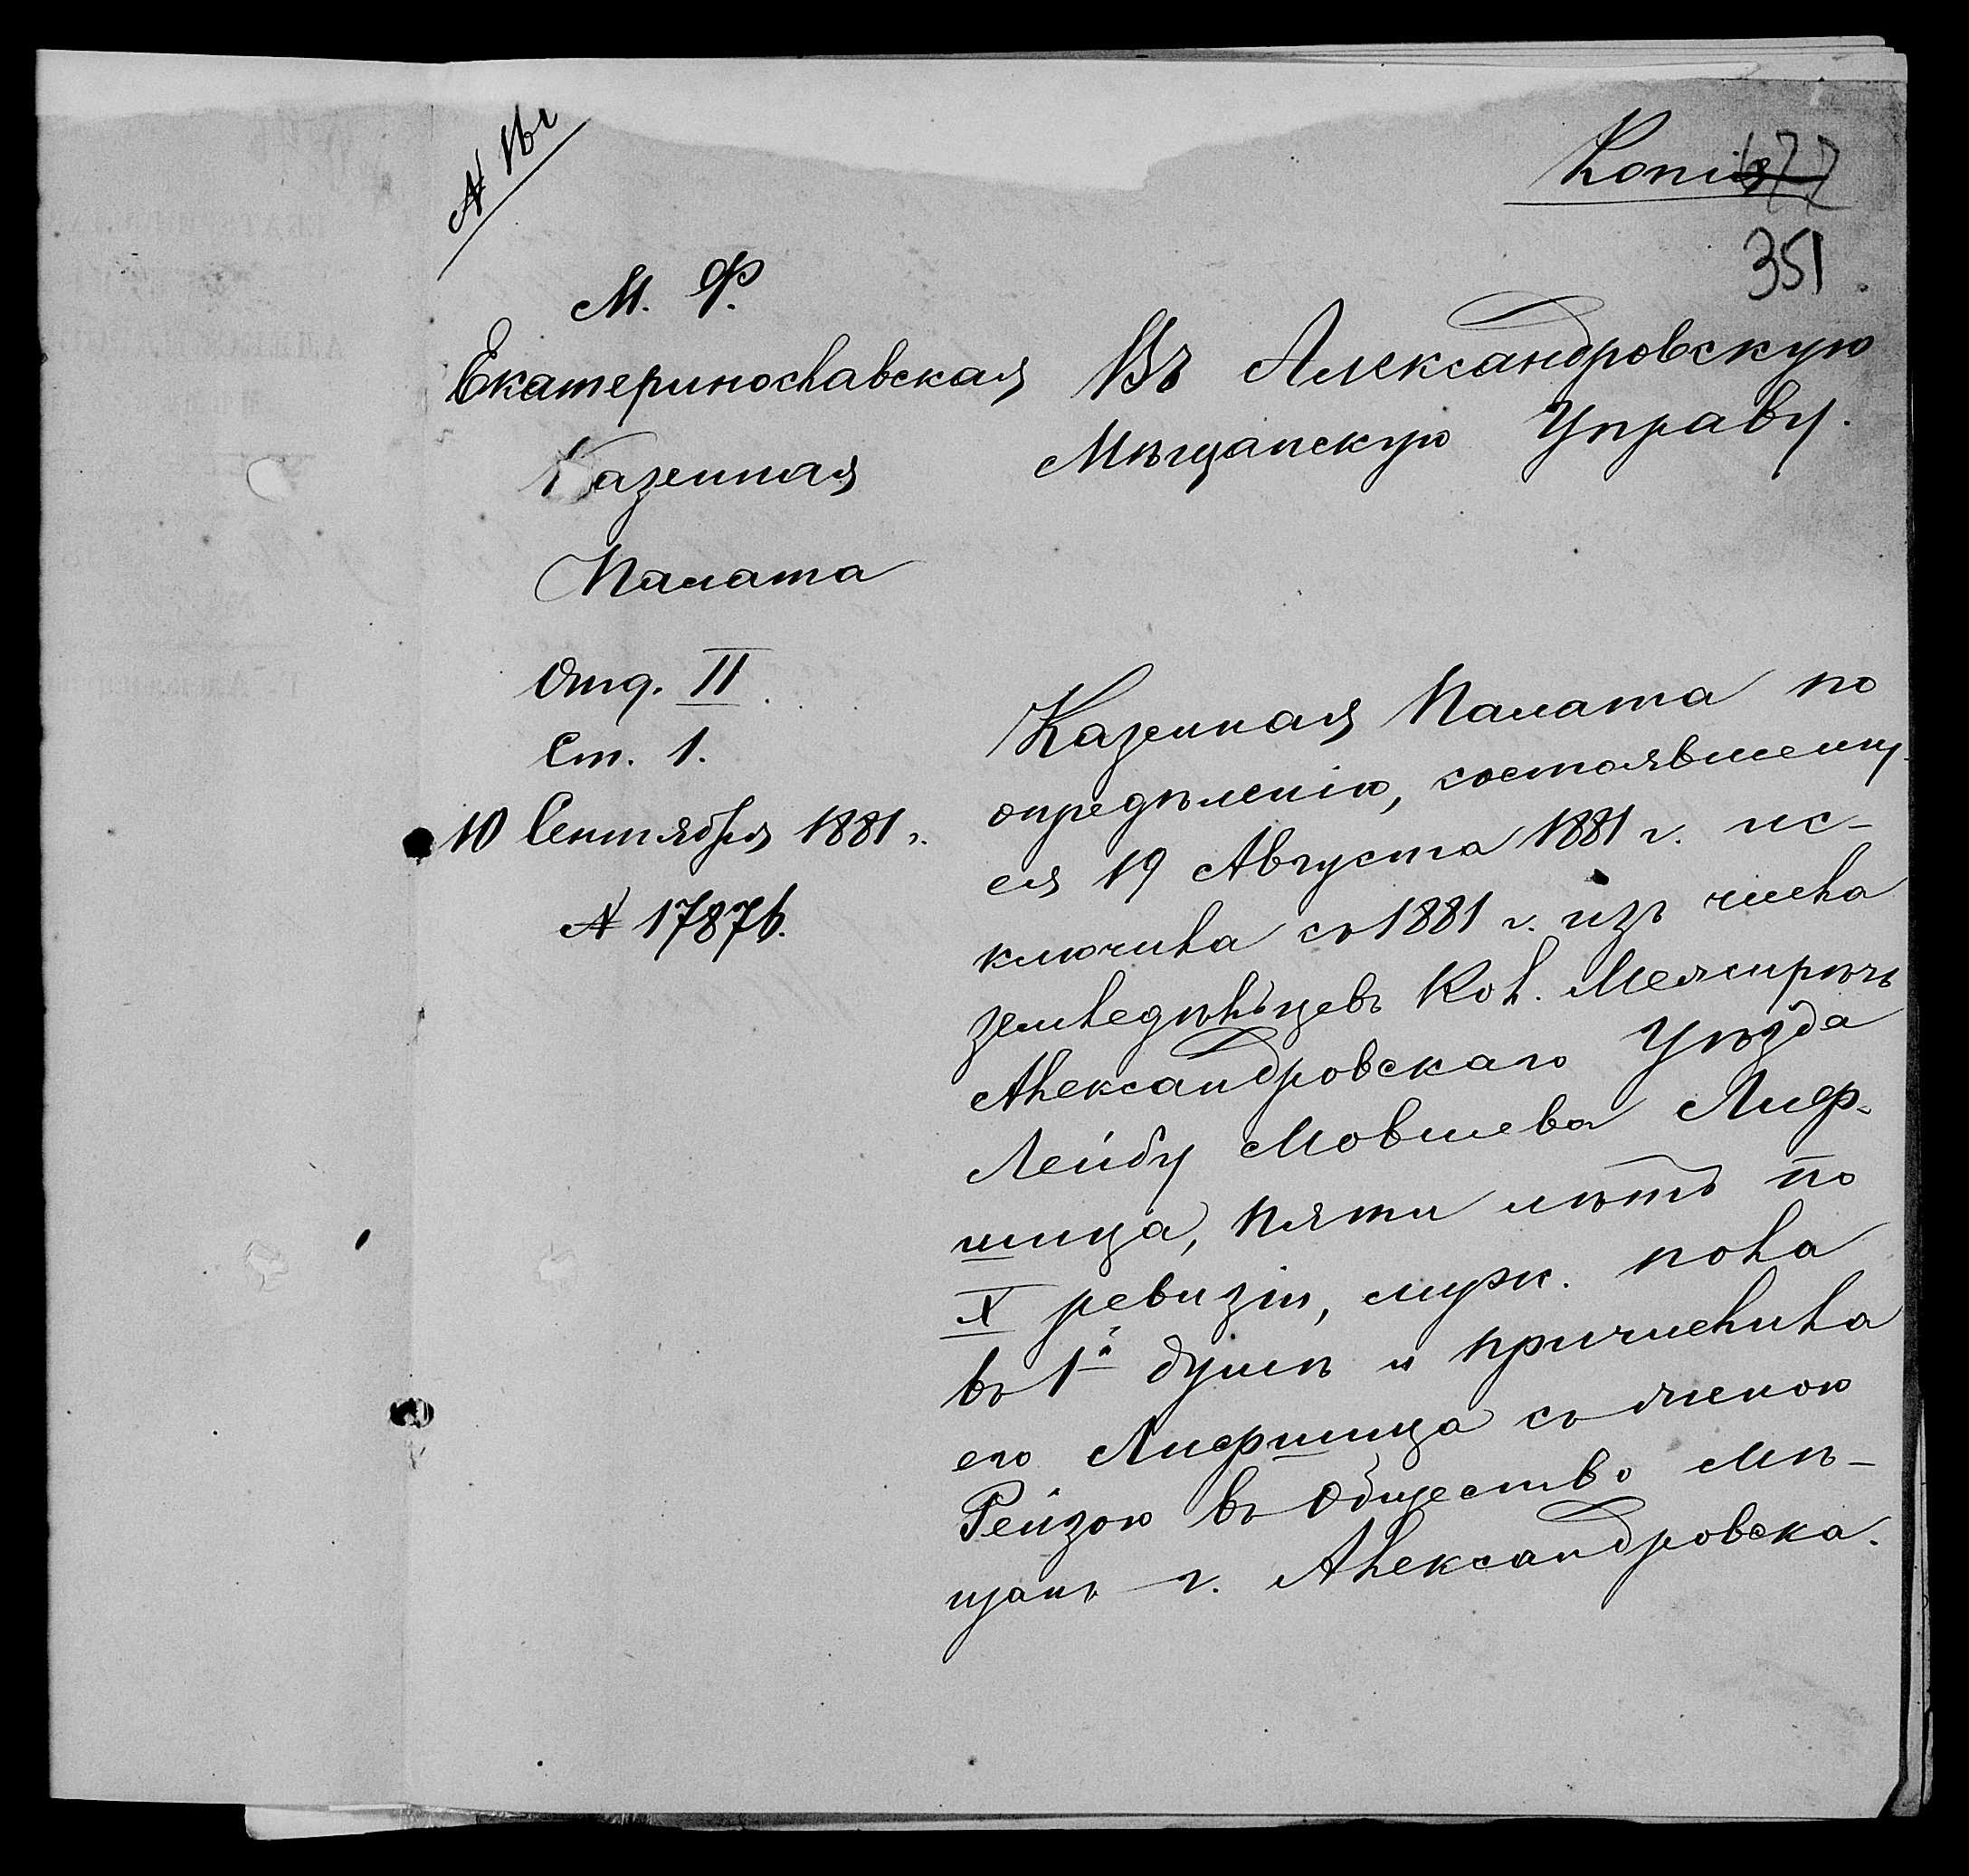 Копія
677
351
М. Ф.
Екатеринославская
Казенная
Палата
Отд. II
Ст. 1.
10 Сентября 1881 г.
№ 17876.
Въ Александровскую
Мѣщанскую Управу.
Казенная Палата по
опредѣленію, состоявшему
ся 19 Августа 1881 г. ис-
ключила съ 1881 г. изъ числа
земледѣльцевъ Кол. Межирѣчь
Александровскаго Уѣзда
Лейбу Мовшева Лиф-
шица, пяти лѣтъ по
X ревизіи, муж. пола
въ 1й душѣ и причислила
его Лифшица съ женою
Рейзою въ Общество мѣ-
щанъ г. Александровска.